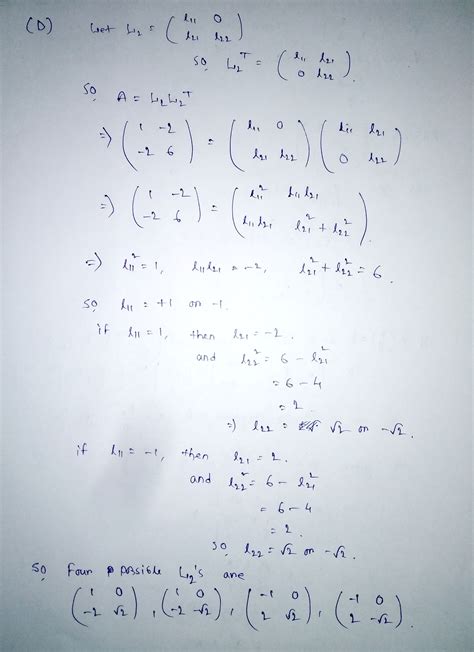 (D) Let L₂ = ( l₁₁ 0
l₂₁ l₂₂ )
so L₂ᵀ = ( l₁₁ l₂₁
0 l₂₂ ).
so A = L₂L₂ᵀ
⇒ ( 1 -2
-2 6 ) = ( l₁₁ 0
l₂₁ l₂₂ ) ( l₁₁ l₂₁
0 l₂₂ )
⇒ ( 1 -2
-2 6 ) = ( l₁₁² l₁₁l₂₁
l₁₁l₂₁ l₂₁² + l₂₂² ).
⇒ l₁₁² = 1, l₁₁l₂₁ = -2, l₂₁² + l₂₂² = 6.
so l₁₁ = +1 or -1.
if l₁₁ = 1, then l₂₁ = -2.
and l₂₂² = 6 - l₂₁²
= 6 - 4
= 2.
⇒ l₂₂ = √2 or -√2.
if l₁₁ = -1, then l₂₁ = 2.
and l₂₂² = 6 - l₂₁²
= 6 - 4
= 2.
so l₂₂ = √2 or -√2.
so Four possible L₂'s are
( 1 0
-2 √2 ), ( 1 0
-2 -√2 ), ( -1 0
2 √2 ), ( -1 0
2 -√2 ).